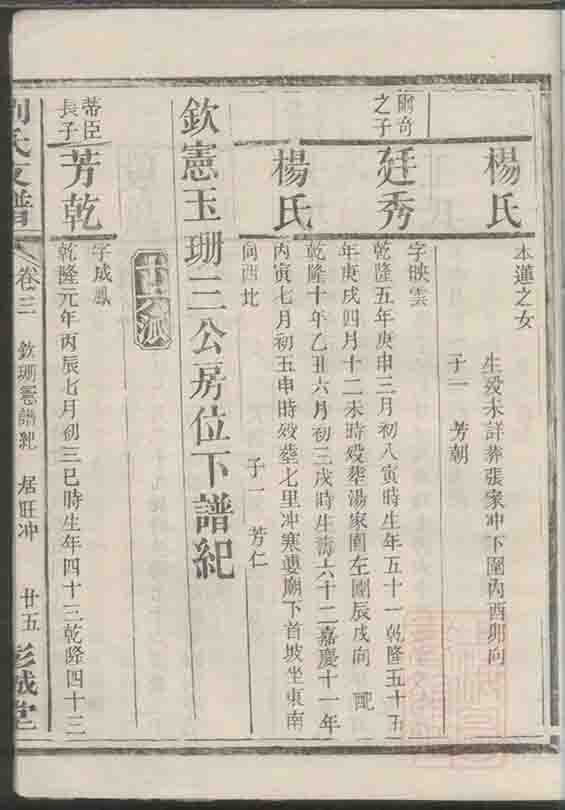 楊氏
本蓮之女
生殁未詳葬張家冲下圍內酉卯向
子一 芳朝
爾奇之子
廷秀
字映雲
乾隆五年庚申三月初八寅時生年五十一乾隆五十五
年庚戌四月十二未時殁葬湯家園左圍辰戌向 配
楊氏
乾隆十年乙丑六月初三戌時生壽六十二嘉慶十一年
丙寅七月初五申時殁葬七里冲寒婆廟下首坡坐東南
向西北
子一 芳仁
欽憲玉珊三公房位下譜紀
十六派
蒂臣長子
芳乾
字成鳳
乾隆元年丙辰七月初三巳時生年四十三乾隆四十三
劉氏支譜
卷三 欽珊憲譜紀 居旺冲 廿五 彭城堂